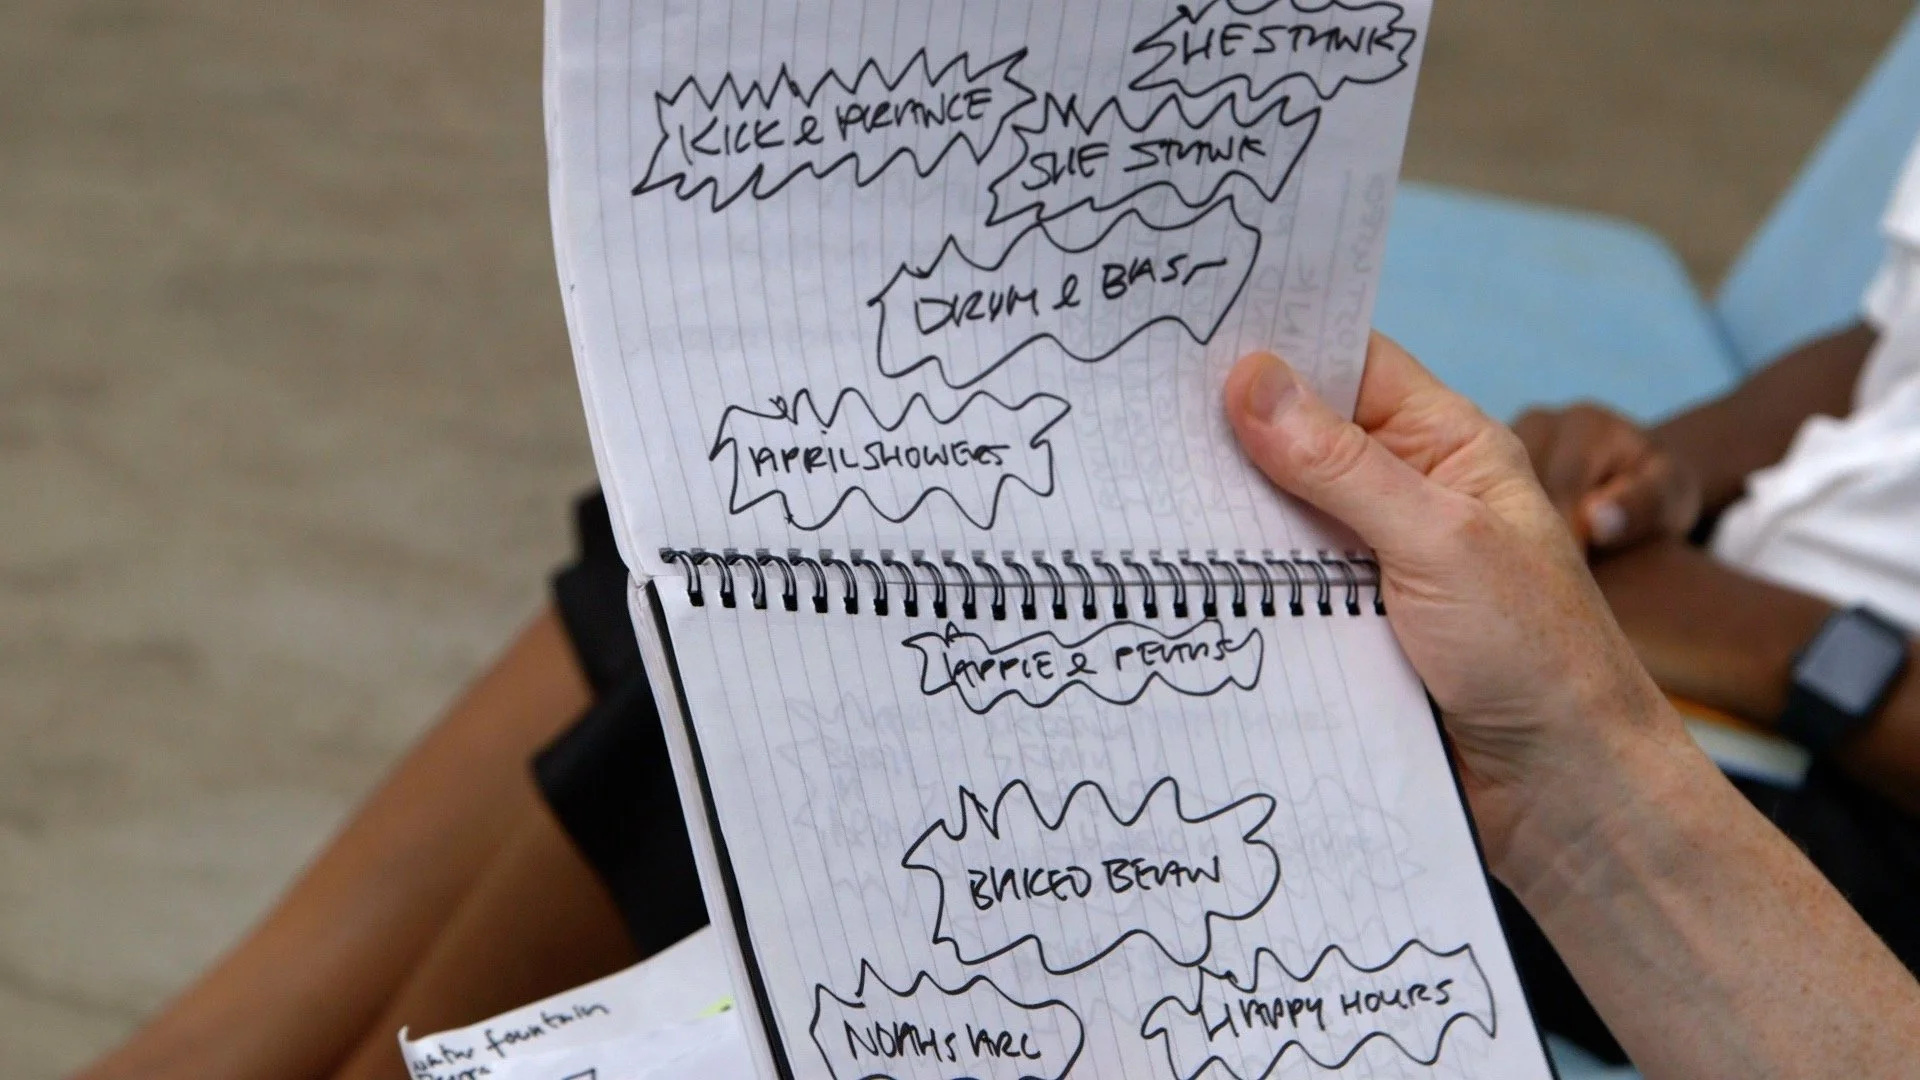 HE STUNK
KICK & PRANCE
SHE STUNK
DRUM & BASS
APRIL SHOWERS
APPLE & PEARS
BAKED BEAN
NOAHS ARC
HAPPY HOURS
water fountain